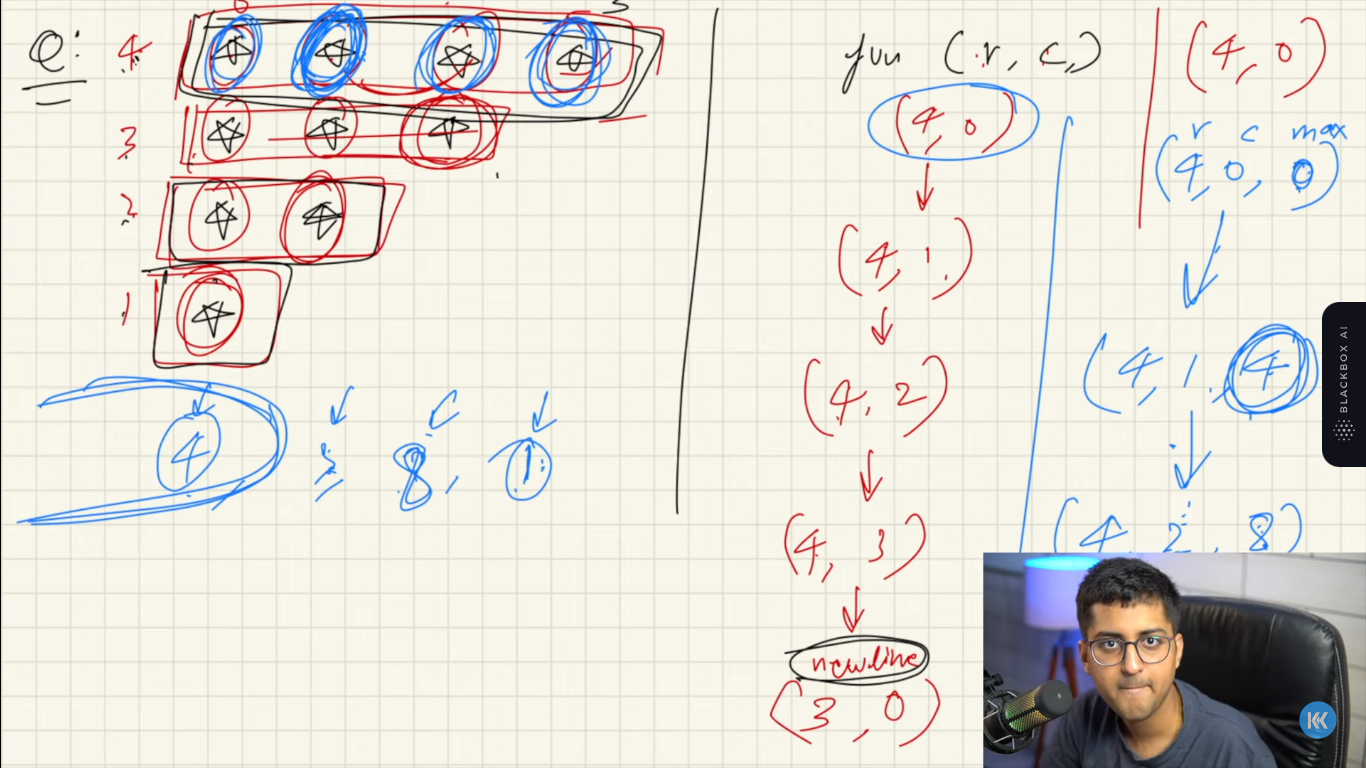 Q:
4
3
2
1
4 3 8, 1
fun (r, c,)
(4, 0)
(4, 1)
(4, 2)
(4, 3)
newline
(3, 0)
(4, 0)
r c max
(4, 0, 0)
(4, 1, 4)
(4, 2, 8)
BLACKBOX AI